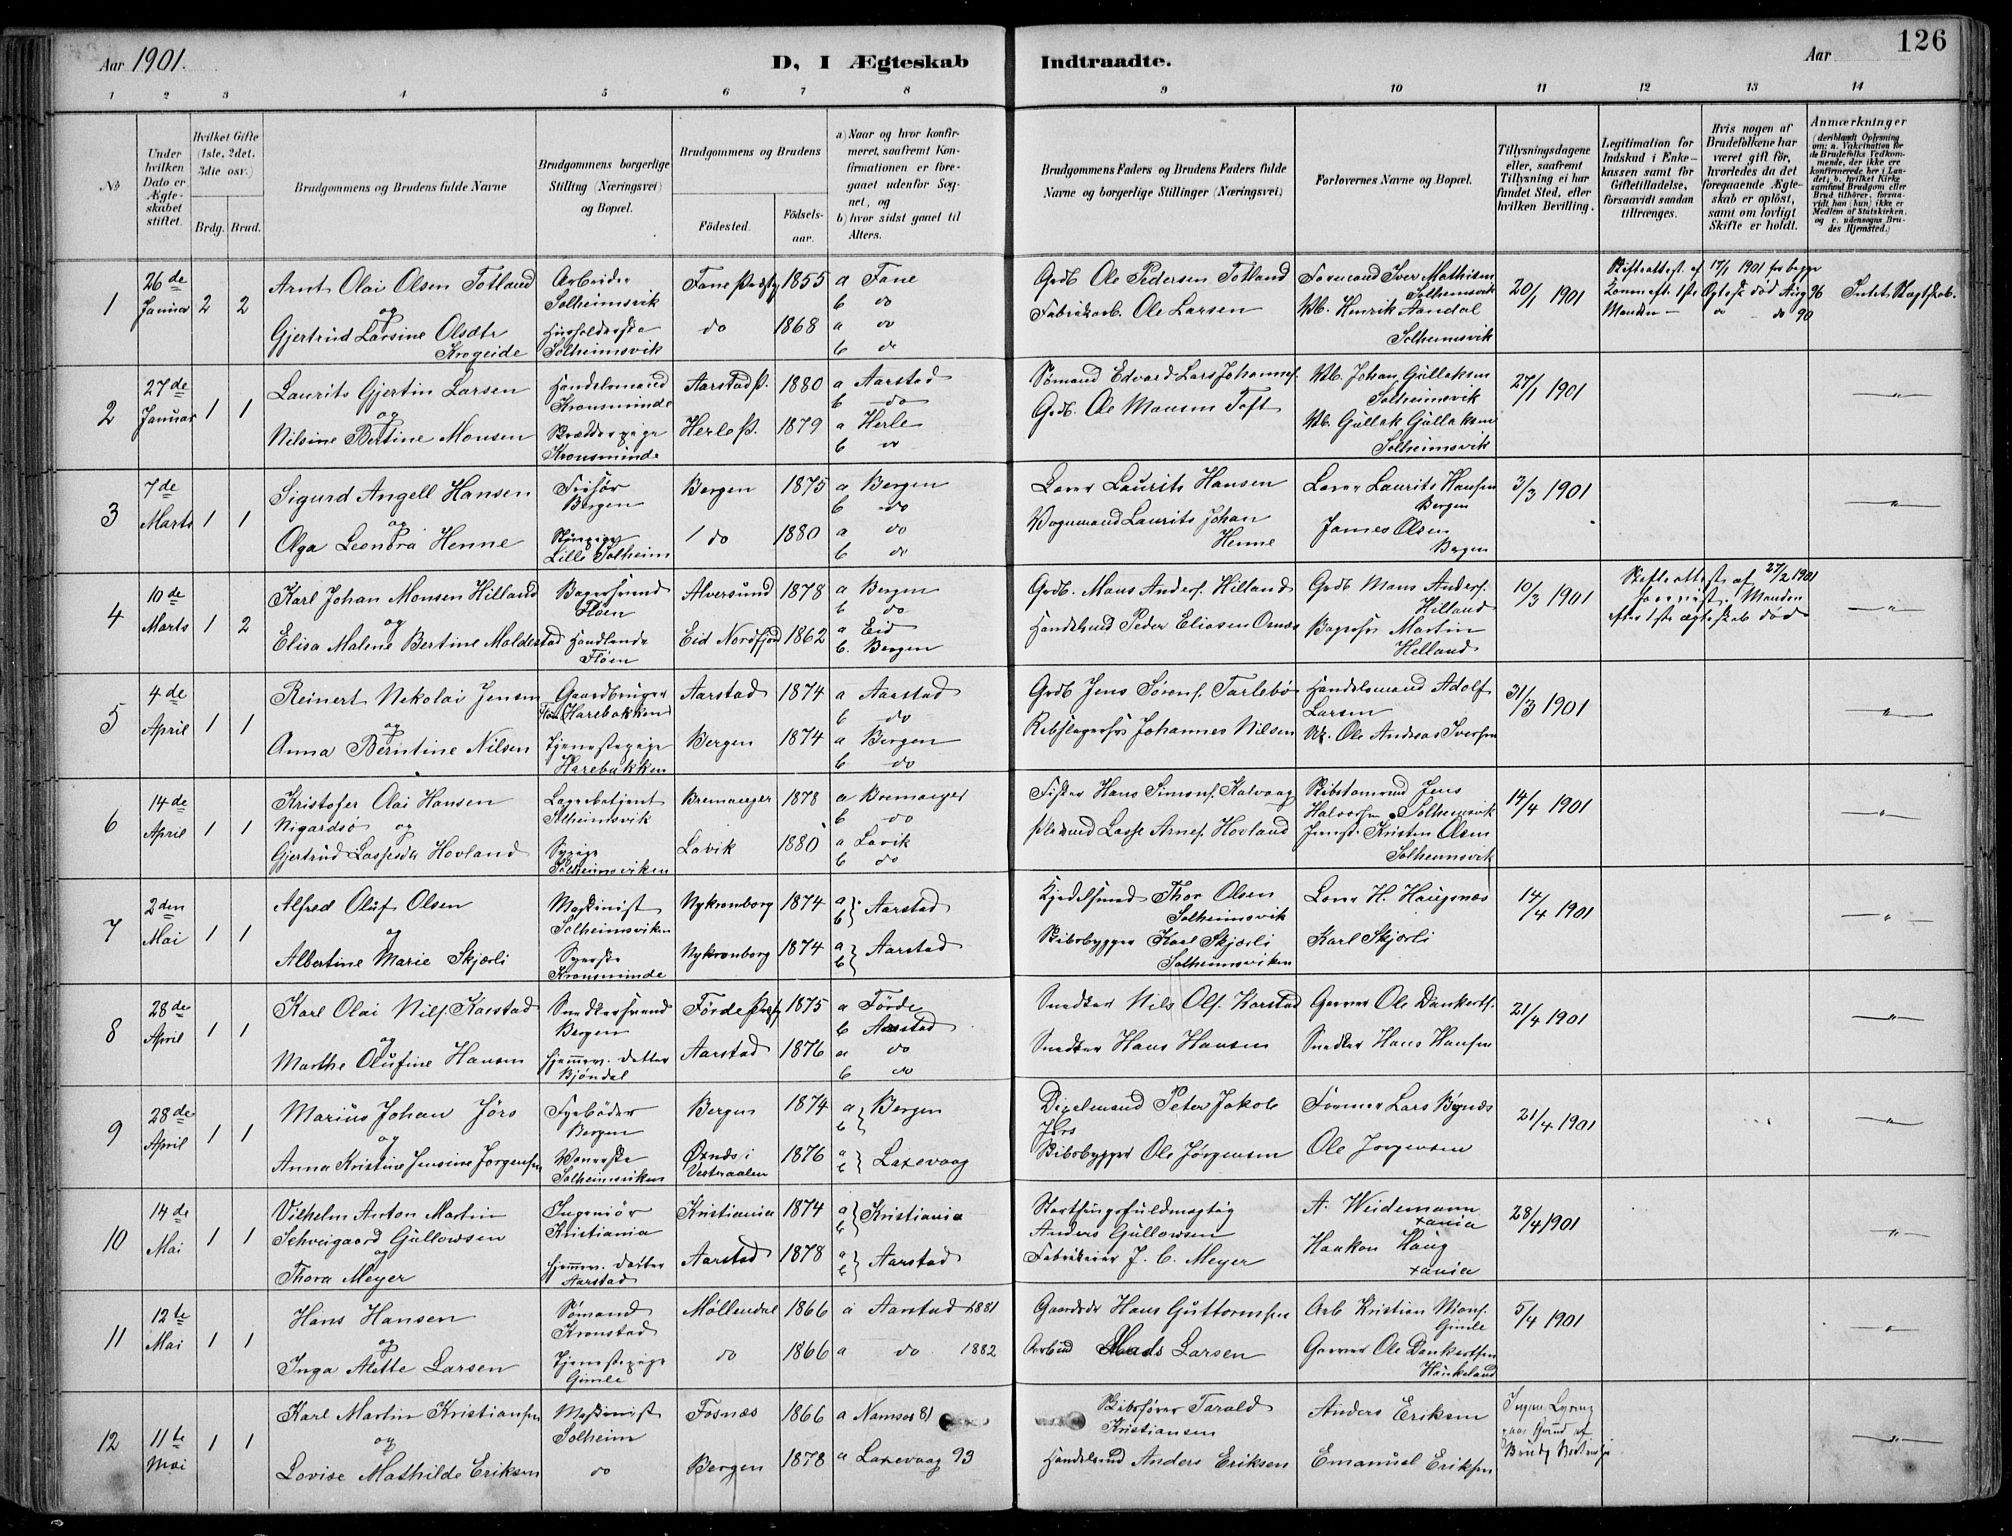 Aar 1901.
D, I Ægteskab Indtraadte.
Aar
126
1 2 3 4 5 6 7 8 9 10 11 12 13 14
No
Under hvilken Dato er Ægteskabet stiftet.
Hvilket Gifte (1ste, 2det, 3die osv.)
Brdg. Brud.
Brudgommens og Brudens fulde Navne
Brudgommens borgerlige Stilling (Næringsvei) og Bopæl.
Brudgommens og Brudens
Fødested. Fødselsaar.
a) Naar og hvor konfirmeret, saafremt Konfirmationen er foregaaet udenfor Sognet, og
b) hvor sidst gaaet til Alters.
Brudgommens Faders og Brudens Faders fulde Navne og borgerlige Stillinger (Næringsvei)
Forlovernes Navne og Bopæl.
Tillysningsdagene eller, saafremt Tillysning ei har fundet Sted, efter hvilken Bevilling.
Legitimation for Indskud i Enkekassen samt for Giftetilladelse, forsaavidt saadan tiltrænges.
Hvis nogen af Brudefolkene har været gift før, hvorledes da det foregaaende Ægteskab er opløst, samt om lovligt Skifte er holdt.
Anmærkninger
(deriblandt Oplysning om: a. Vakcination for de Brudefolks Vedkommende, der ikke ere konfirmerede her i Landet; b. hvilket Kirkesamfund Brudgom eller Brud tilhører, forsaavidt han (hun) ikke er Medlem af Statskirken, og c. udensogns Brudes Hjemsted.)
1 26de Januar 2 2
Arnt Olai Olsen Totland
og
Gjertrud Larsine Olsdtr Krogeide
Arbeider Solheimsvik
Solheimsvik
Fane Præstg 1855 a Fane
b do
do 1868 a do
b do
Grdb Ole Pedersen Totland
Fabrikarb. Ole Larsen
Formand Iver Mathisen Solheimsvik
Henrik Aandal Solheimsvik
20/1 1901
Skifteattest af 17/1 1901 for begge
Intet Slagtskab.
2 27de Januar 1 1
Laurits Gjertin Larsen
og
Nilsine Bertine Monsen
Handelsmand Kronsminde
Kronsminde
Aarstad P. 1880 a Aarstad
b do
Herlo P. 1879 a Herlo
b do
Sømand Edvard Lars Johannes.
Grdb. Ole Monsen Toft
Johan Gullaksen Solheimsvik
Gullak Gullaksen Solheimsvik
27/1 1901
"
3 7de Marts 1 1
Sigurd Angell Hansen
og
Olga Leonora Henne
Frisør Bergen
Lille Solheim
Bergen 1875 a Bergen
b do
do 1880 a do
b do
Laurits Hansen
Vognmand Laurits Johan Henne
Laurits Hansen Bergen
James Olsen Bergen
3/3 1901
"
4 10de Marts 1 2
Karl Johan Monsen Hilland
og
Elisa Malene Bertine Maldestad
Bagersvend Fløen
Handlende Fløen
Alversund 1878 a Bergen
b do
Eid Nordfjord 1862 a Eid
b. Bergen
Grdb. Mons Anders. Hilland
Handelsmd Peder Eliasen Osnes
Grdb Mons Anders. Helland
Martin Helland
10/3 1901
Skifteattest af 27/2 1901
Manden
efter 1ste ægteskab død
"
5 4de April 1 1
Reinert Nekolai Jensen
og
Anna Berntine Nilsen
Gaardbruger Harebakken
Tjenestepige Harebakken
Aarstad 1874 a Aarstad
b do
Bergen 1874 a Bergen
b do
Grdb Jens Sørens. Tarlebø
Johannes Nilsen
Handelsmand Adolf Larsen
Ole Andreas Iversen
31/3 1901
"
6 14de April 1 1
Kristofer Olai Hansen
Nigardsø og
Gjertrud Lassesdtr Hovland
Lagerbetjent Solheimsvik
Sypige Solheimsviken
Bremanger 1878 a Bremanger
b do
Lavik 1880 a Lavik
b do
Fisker Hans Simons. Kalvaag
Lasse Arnes. Hovland
Jens Halvorsen Solheimsvik
Kristen Olsen Solheimsvik
14/4 1901
"
7 2den Mai 1 1
Alfred Oluf Olsen
og
Albertine Marie Skjærli
Maskinist Solheimsviken
Syerske Kronsminde
Nykronborg 1874 a b } Aarstad
Nykronborg 1874 a b } Aarstad
Kjedelsmed Thor Olsen Solheimsvik
Skibsbygger Karl Skjærli Solheimsviken
H. Haugsnæs
Karl Skjærli
14/4 1901
"
8 28de April 1 1
Karl Olai Nils. Karstad
og
Marthe Olufine Hansen
Snedkersvend Bergen
hjemmev. datter Bjøndal
Førde Præstg 1875 a Førde
b Aarstad
Aarstad 1876 a do
b do
Snedker Nils Ols. Karstad
Snedker Hans Hansen
Garver Ole Dankerts.
Snedker Hans Hansen
21/4 1901
"
9 28de April 1 1
Marius Johan Jørs
og
Anna Kristine Jensine Jørgensen
Fyrbøder Bergen
Væverske Solheimsviken
Bergen 1874 a b } Bergen
Øxnæs i Vesteraalen 1876 a b } Laxevaag
Peter Jakob Jørs
Skibsbygger Ole Jørgensen
Former Lars Bynæs
Ole Jørgensen
21/4 1901
"
10 14de Mai 1 1
Vilhelm Anton Martin
Schveigaard Gullowsen
og
Thora Meyer
Ingeniør Kristiania
hjemmev. datter Aarstad
Kristiania 1874 a b } Kristiania
Aarstad 1878 a b } Aarstad
Storthingsfuldmægtig
Anders Gullowsen
Fabrikeier J. C. Meyer
A. Weidemann xania
Haakon Haug xania
28/4 1901
"
11 12te Mai 1 1
Hans Hansen
og
Inga Alette Larsen
Sømand Kronstad
Tjenestepige Gimle
Møllendal 1866 a Aarstad 1881
do 1866 a do 1882
Hans Guttormsen
Mads Larsen
Arb Kristian Mons. Gimle
Garver Ole Dankertsen Haukeland
5/4 1901
"
12 11te Mai 1 1
Karl Martin Kristiansen
og
Lovise Mathilde Eriksen
Maskinist Solheim
do
Fosnæs 1866 a Namsos 81
Bergen 1878 a Laxevaag 93
Skibsfører Tarald Kristiansen
Handelsmd Anders Eriksen
Anders Eriksen
Emanuel Eriksen
Ingen Lysning
paa Grund af
"